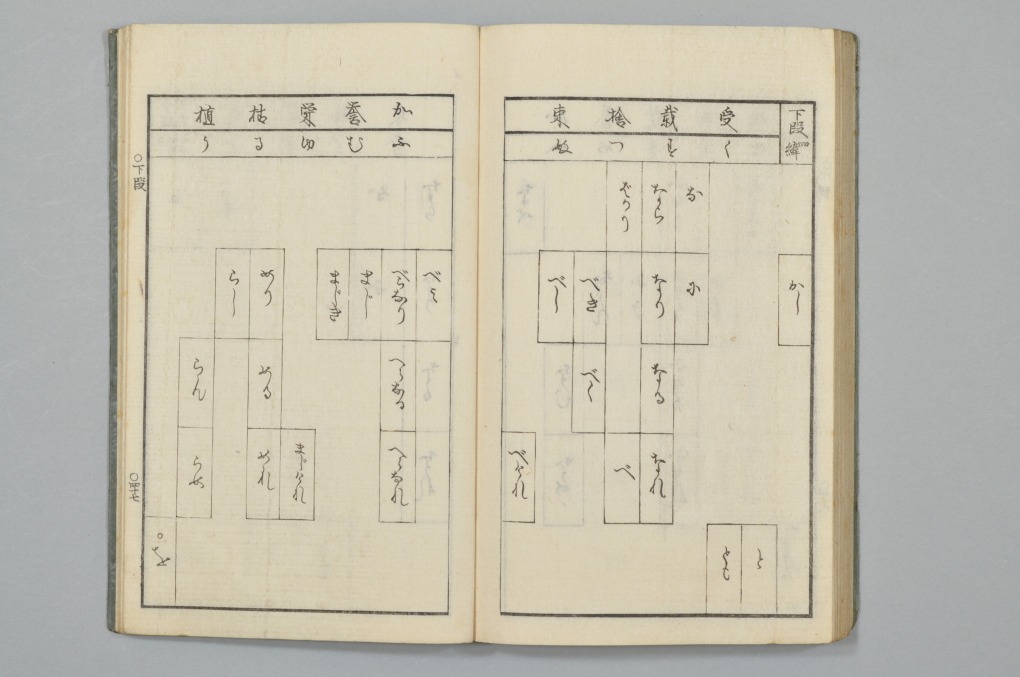 下段
受
載
捨
東
く
す
つ
ぬ
かし
と
とも
な
に
なら
なり
なる
なれ
ばかり
べ
べき
べく
べし
べけれ
加
誉
栄
枯
植
ふ
む
ゆ
る
う
べみ
べらなり
べらなる
べらなれ
まじ
まじき
まじけれ
めり
める
めれ
らし
らん
らめ
○下段
○四十七